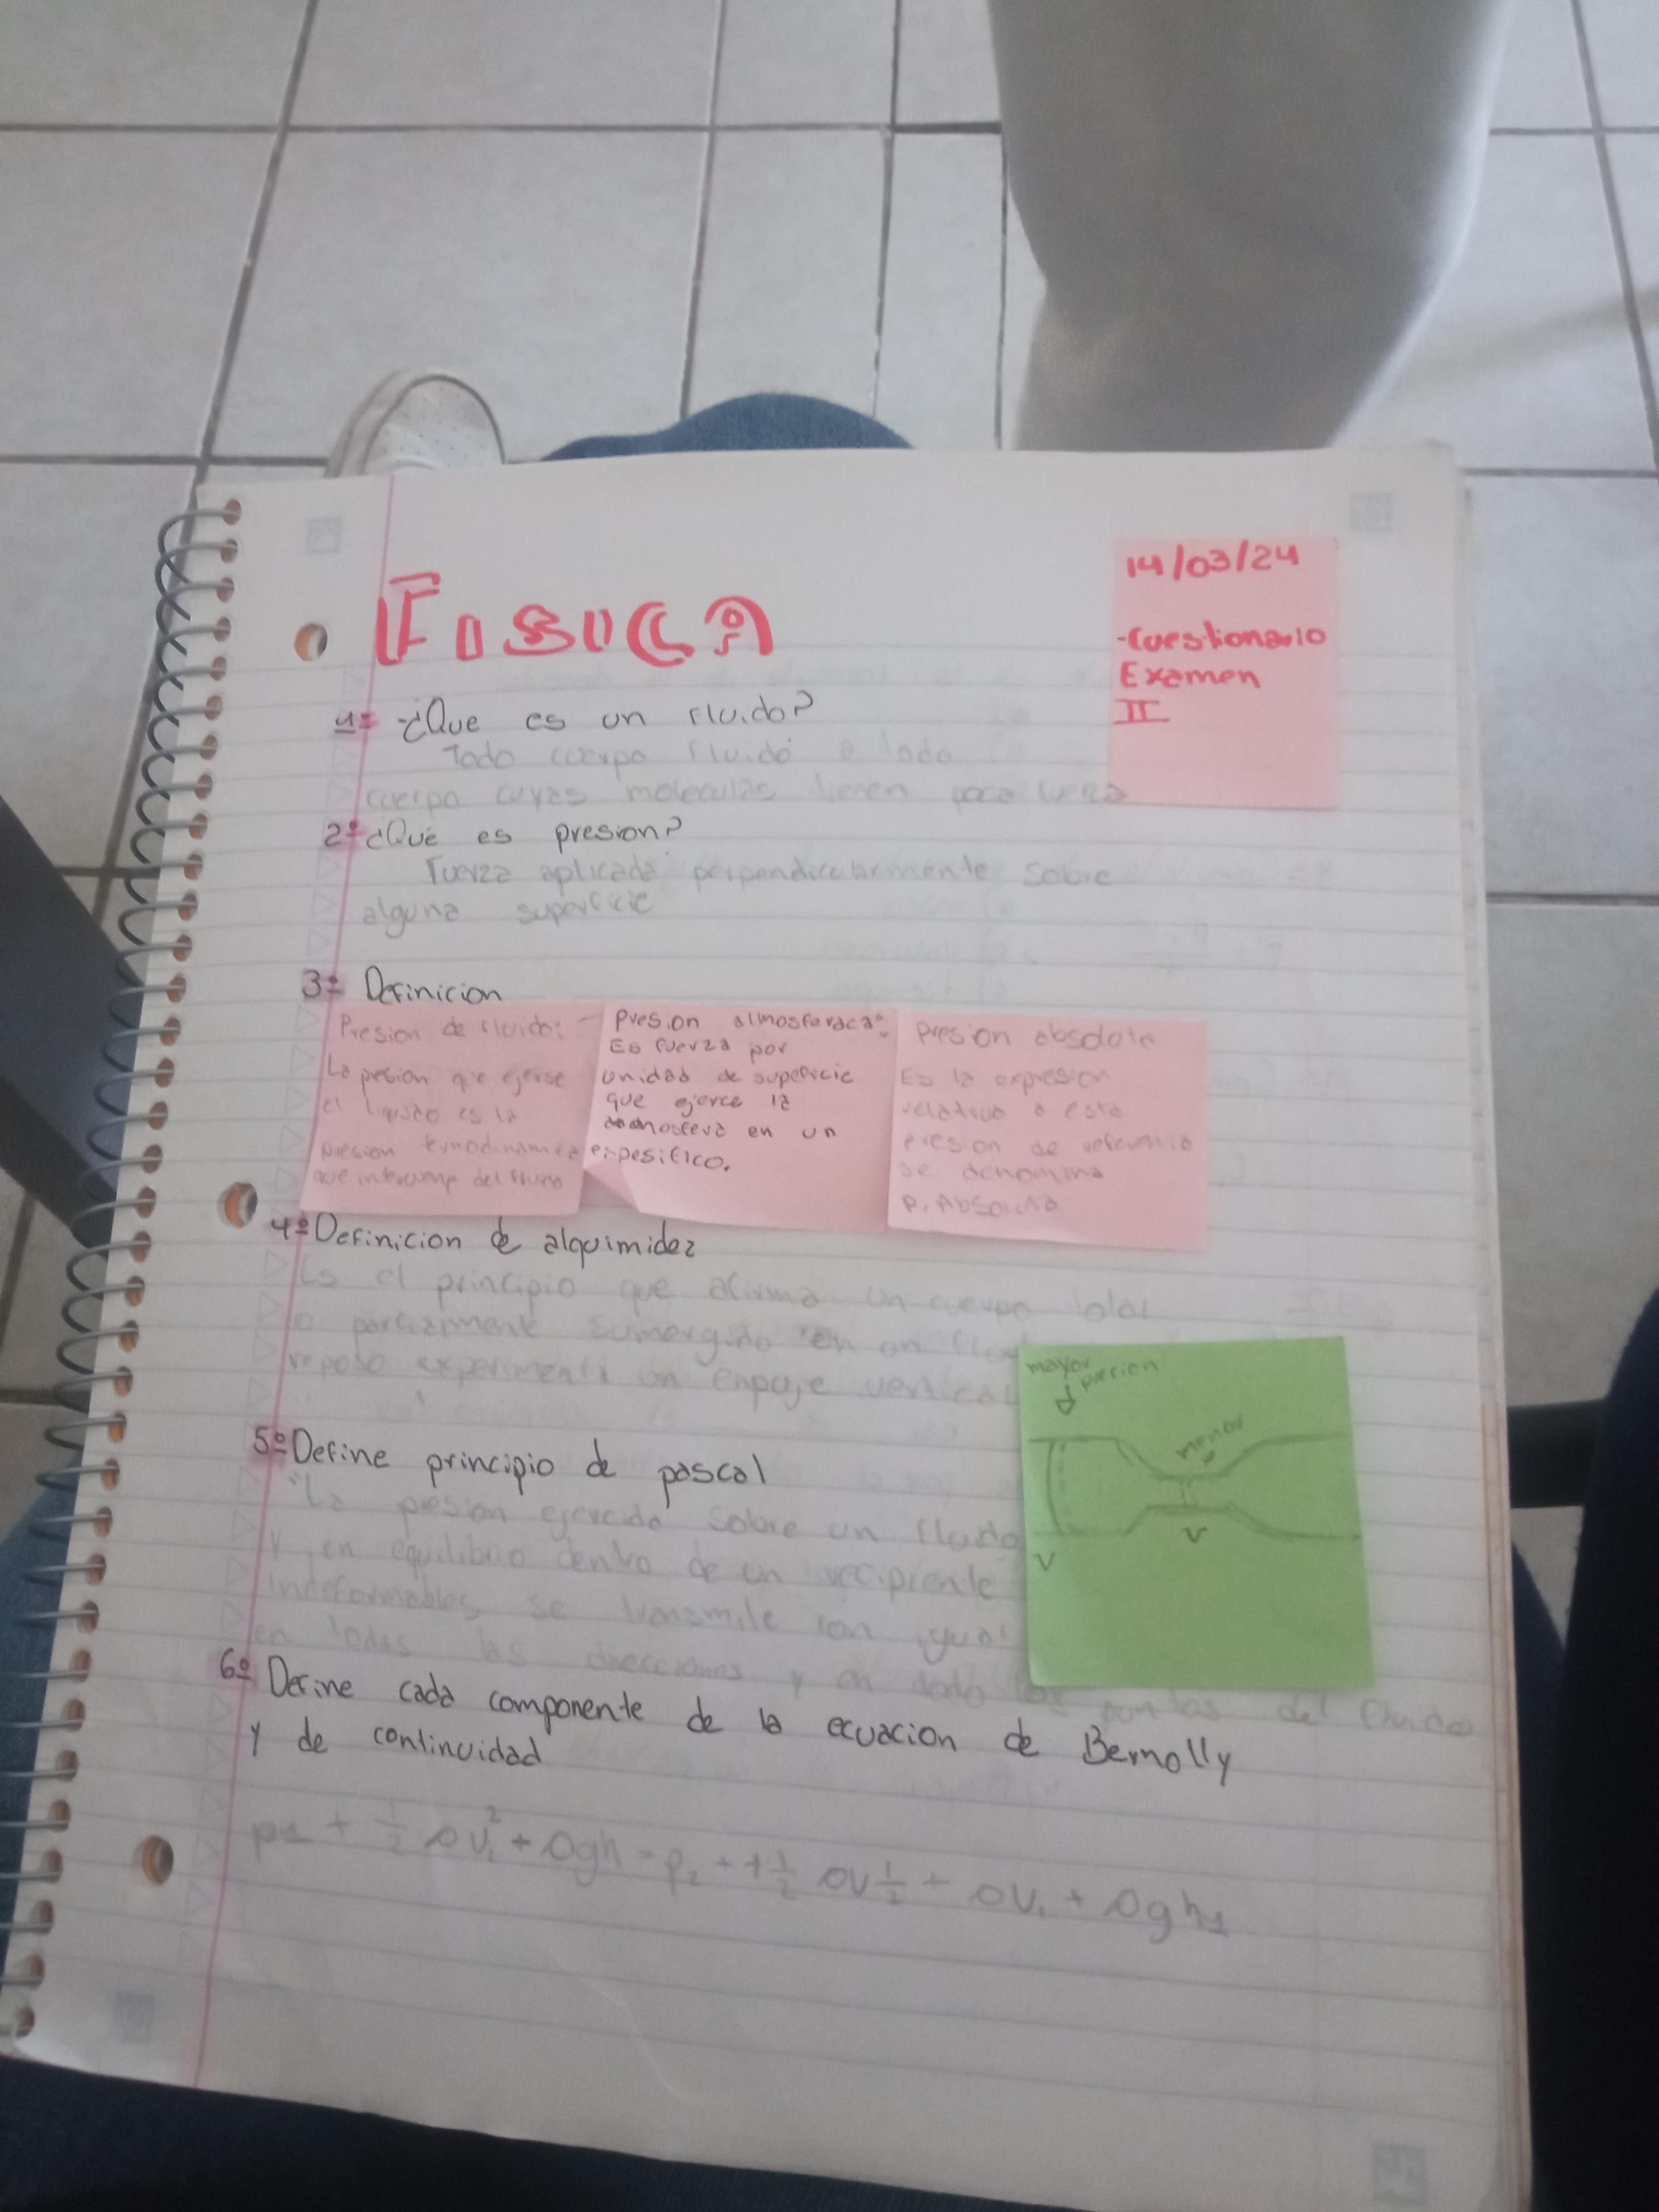 Fisica
14/03/24
-Cuestionario
Examen
II
1= -¿Que es un fluido?
Todo cuerpo fluido a todo
cuerpo cuyas moleculas tienen poca fuerza
2º ¿Que es presion?
Fuerza aplicada perpendicularmente sobre
alguna superficie
3º Definicion
Presion de fluido:
La presion que ejerse
el liquido es la
presion
que del fluido
presion
Es fuerza por
unidad de superficie
que ejerce la
en un
espesifico.
presion absolota
Es la expresion
relativa a esta
presion de referencia
se denomina
P. Absoluta
4º Definicion de alquimidez
Es el principio que afirma un cuerpo total
o parcialmente sumergido en un
reposo experimenta un empuje vertical
mayor
precion
menor
V
V
5º Define principio de pascal
"La presion ejercida sobre un fluido
y en equilibrio dentro de un recipiente
indeformables, se transmite con igual
en todas las direcciones y en todo los puntos del fluido
6º Define cada componente de la ecuacion de Bernolly
y de continuidad